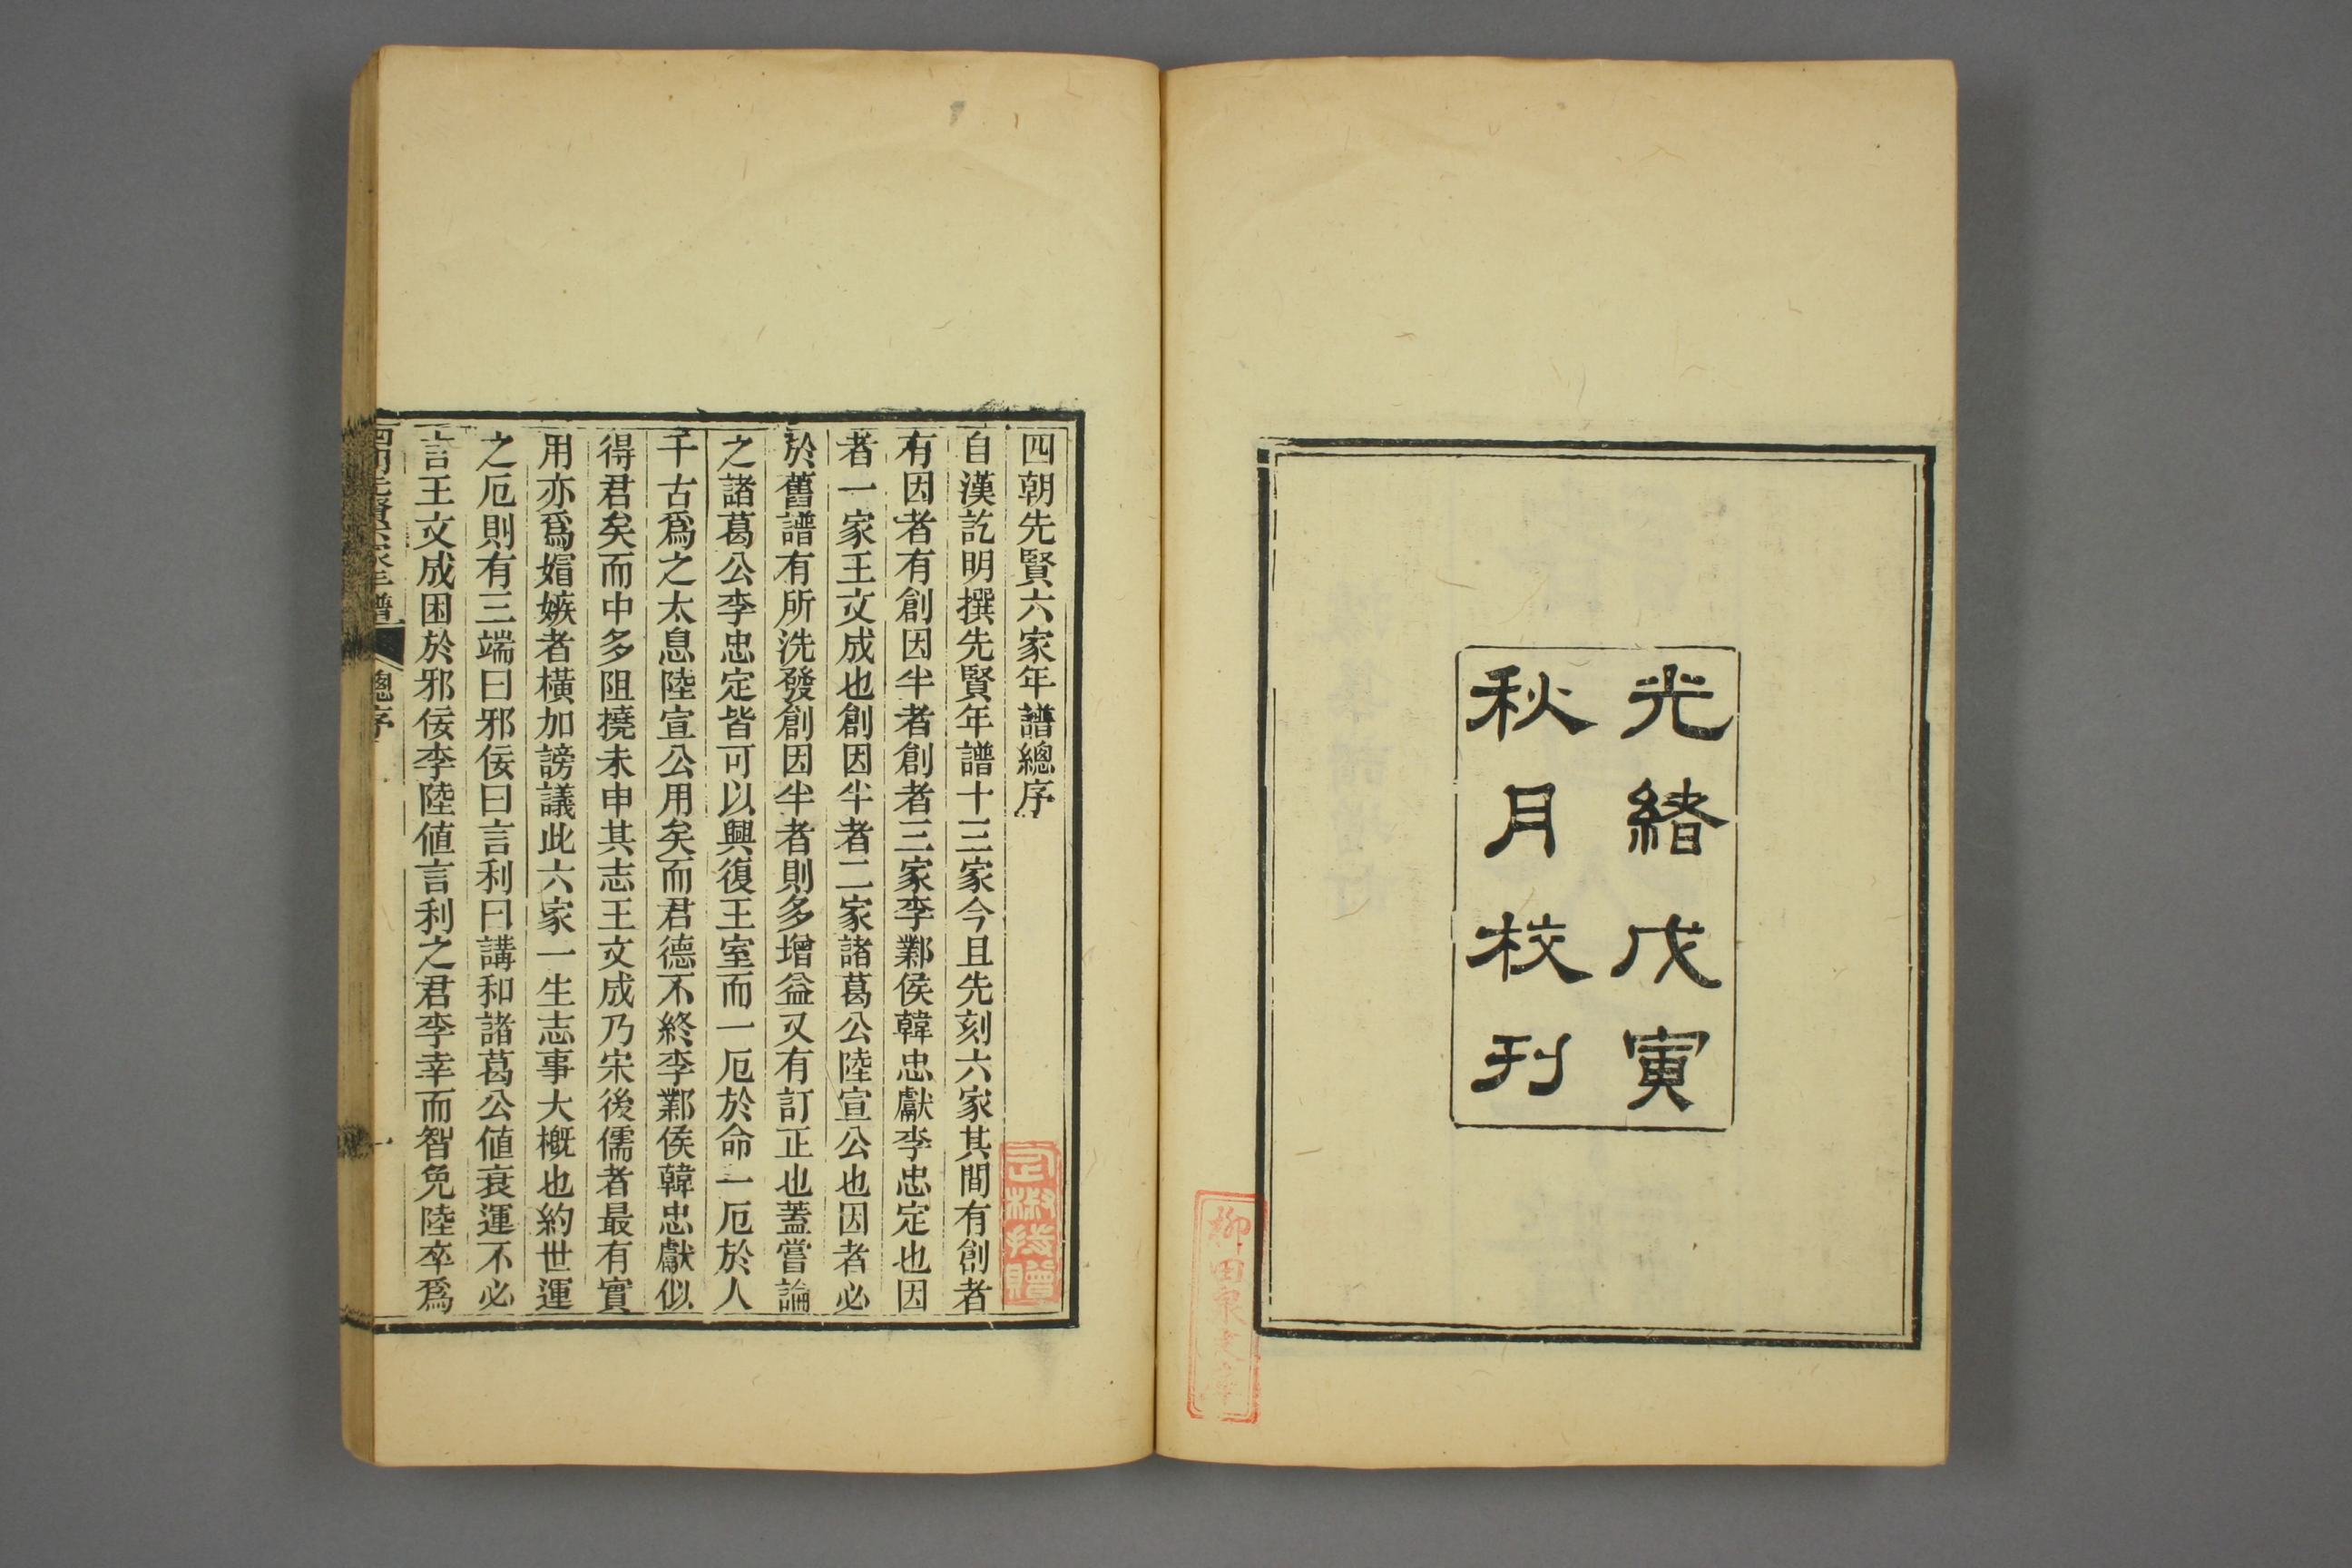 光緒戊寅
秋月校刊
柳田泉文庫
四朝先賢六家年譜總序
自漢訖明撰先賢年譜十三家今且先刻六家其間有創者
有因者有創因半者創者三家李鄴侯韓忠獻李忠定也因
者一家王文成也創因半者二家諸葛公陸宣公也因者必
於舊譜有所洗發創因半者則多增益又有訂正也蓋嘗論
之諸葛公李忠定皆可以興復王室而一厄於命一厄於人
千古爲之太息陸宣公用矣而君德不終李鄴侯韓忠獻似
得君矣而中多阻撓未申其志王文成乃宋後儒者最有實
用亦爲媢嫉者橫加謗議此六家一生志事大概也約世運
之厄則有三端曰邪佞曰言利曰講和諸葛公値衰運不必
言王文成困於邪佞李陸値言利之君李幸而智免陸卒爲
四朝先賢六家年譜
總序
一